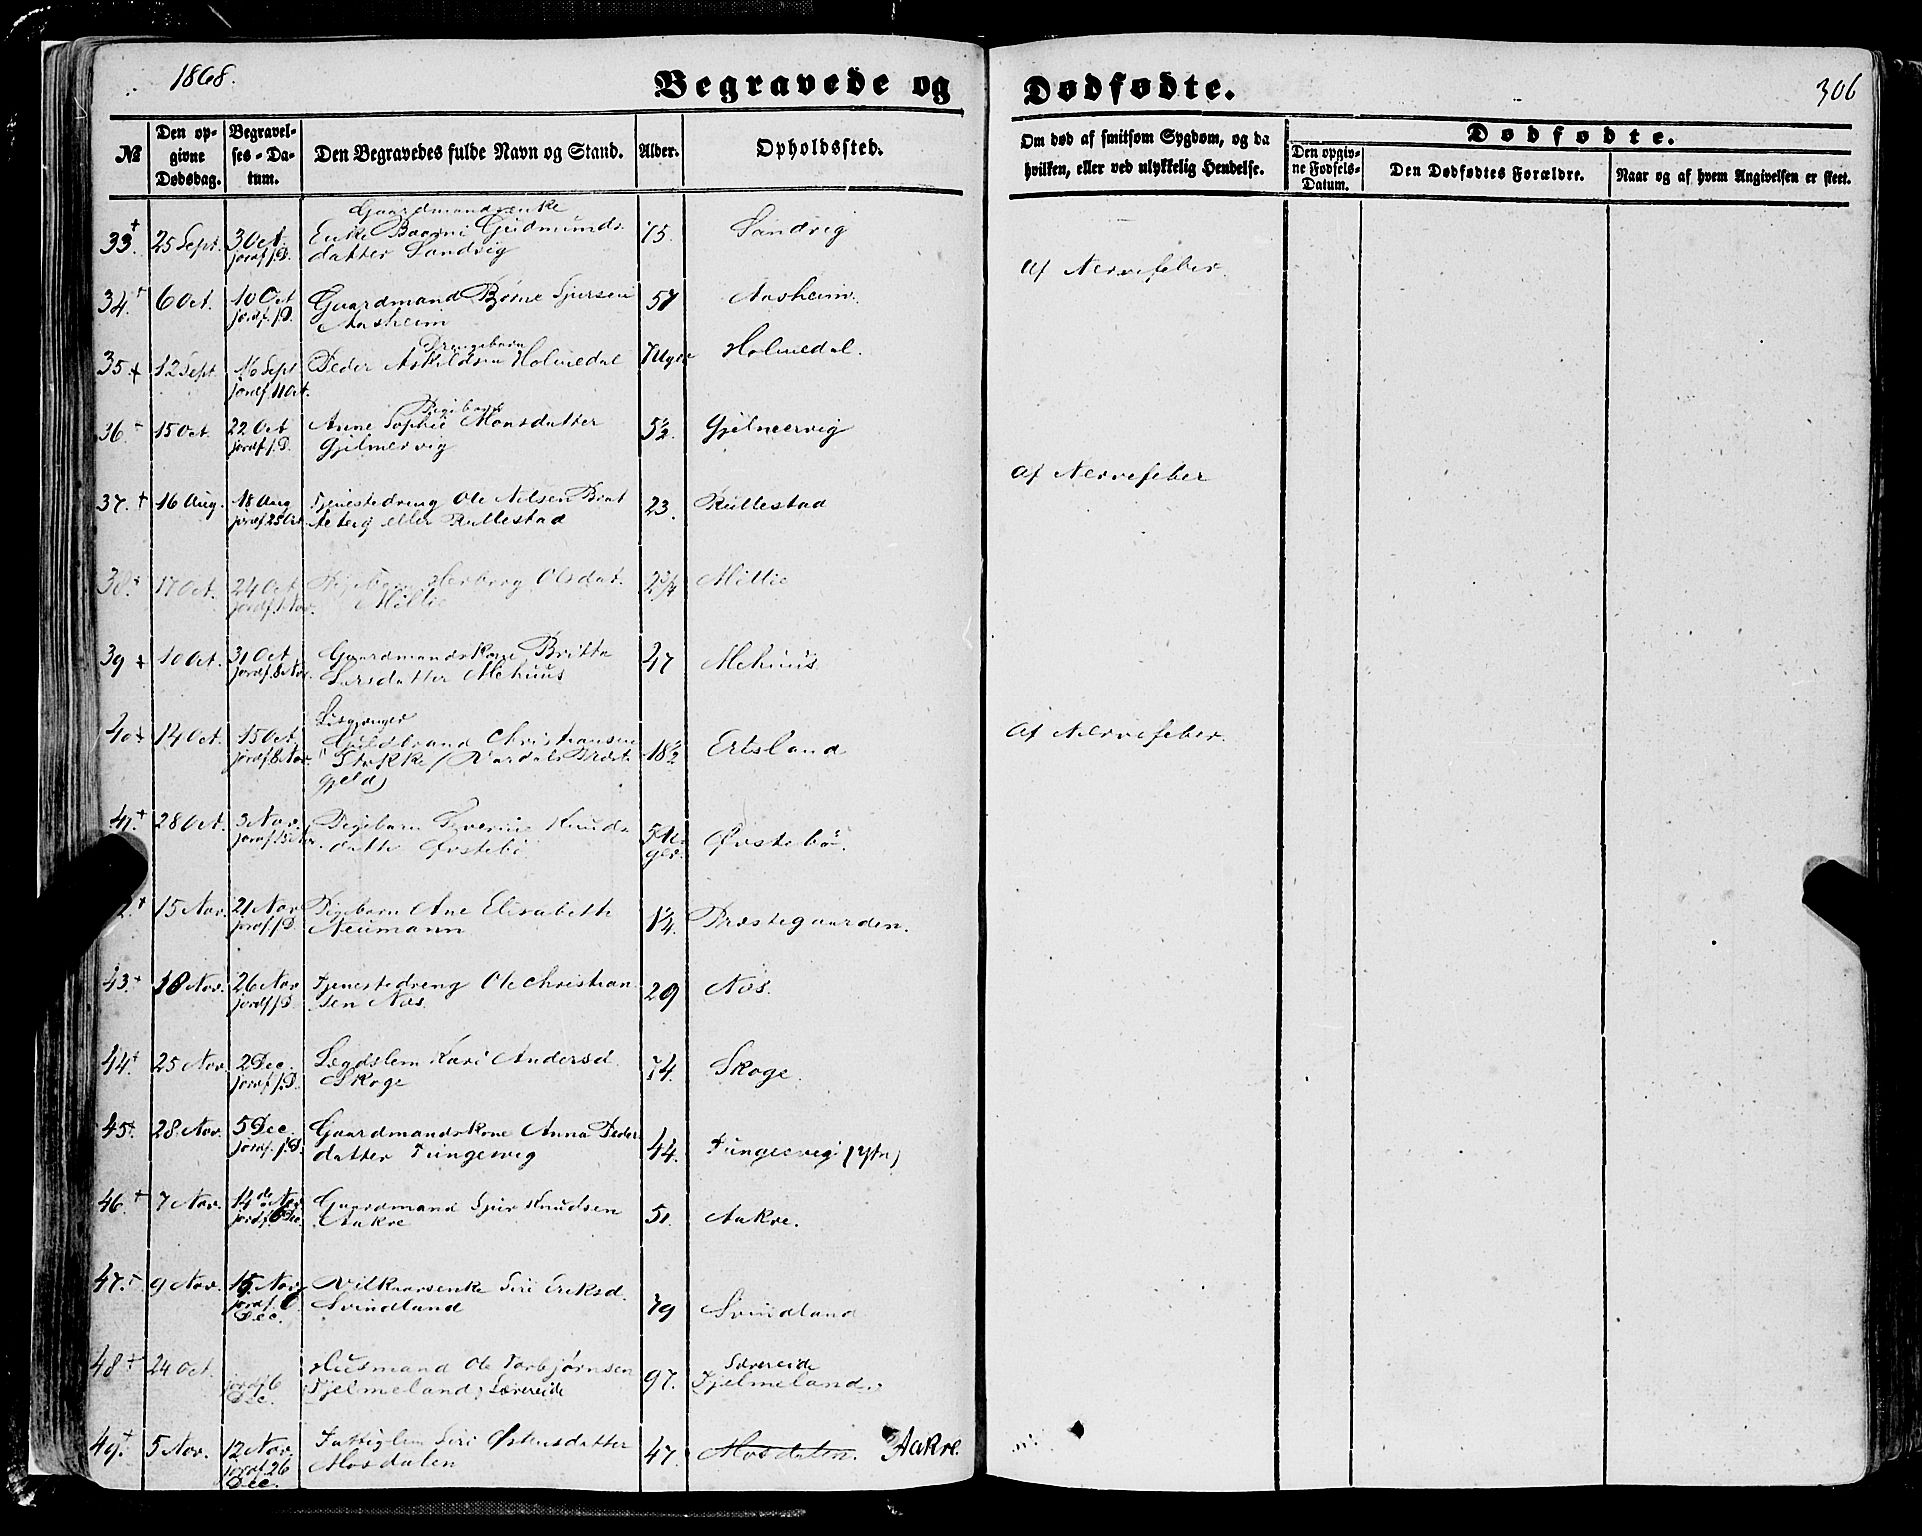 1868.
Begravede og Dødfødte.
306
№
Den opgivne Dødsdag.
Begravelses-Datum.
Den Begravedes fulde Navn og Stand.
Alder.
Opholdssted.
Om død af smitsom Sygdom, og da hvilken, eller ved ulykkelig Hendelse.
Dødfødte.
Den opgivne Fødsels-Datum.
Den Dødfødtes Forældre.
Naar og af hvem Angivelsen er skeet.
Gaardmandsenke
33. 25 Sept. 3 Oct. Enke Gudmunds- 75. Sandvig
jordf. s. D. datter Sandvig
af Nervefeber.
34. 6 Oct. 10 Oct Gaardmand Børne Sjursen 57 Aasheim.
jordf. s. D. Aasheim
Drengebarn
35 12 Sept. 16 Sept Peder Askildsen Holmedal 7 Uger Holmedal.
jordf. 11 Oct.
Pigebarn
36. 15 Oct. 22 Oct Anne Sophie Monsdatter 5½. Gjelmervig
jordf. s. D. Gjelmervig
af Nervefeber
37. 16 Aug. 18 Aug Tjenestedreng Ole Nilsen 23. Rullestad
jordf. 25 Oct. eller Rullestad
38. 17 Oct. 24 Oct Pigebarn Herborg Olsdat. 2¾ Millie
jordf. 1 Nov. Millie
39 10 Oct. 31 Oct. Gaardmandskone Britta 47 Mehuus
jordf. 8 Nov. Larsdatter Mehuus
Løsgænger
40 14 Oct. 15 Oct. Guldbrand Christiansen 18½ Ertsland
jordf. 8 Nov. Stokke (Aardals Præste-
gjeld)
af Nervefeber.
41. 28 Oct. 3 Nov. Pigebarn Severine Knuds- 5 U-
jordf. datter Østebø ger. Østebø.
42. 15 Nov. 21 Nov Pigebarn Ane Elisabeth 1½. Præstegaarden.
jordf. s. D. Neumann
43. 18 Nov. 26 Nov Tjenestedreng Ole Christian- 29 Næs.
jordf. s. D. sen Næs.
44. 25 Nov. 2 Dec. Lægdslem Kari Andersd. 74. Skoge.
jordf. s. D. Skoge
45. 28 Nov. 5 Dec. Gaardmandskone Anna Peder- 44. Tungesvig (Ytre)
jordf. s. D. datter Tungesvig
46. 7 Nov. 14de Nov. Gaardmand Sjur Knudsen 51. Aakre.
jordf. 6 Dec. Aakre
47. 9 Nov. 15 Nov Vilkaarsenke Siri Eriksd. 79 Svindland
jordf. 6 Svindland
Dec.
48 24 Oct. Husmand Ole Torbjørnsen 97. Særereide
jordf. 6 Fjelmeland, Særereide Fjelmeland.
Dec.
49. 5 Nov. 12 Nov. Fattiglem Siri Østensdatter 47. Mosdalen. Aakre.
jordf. 26 Mosdalen
Dec.